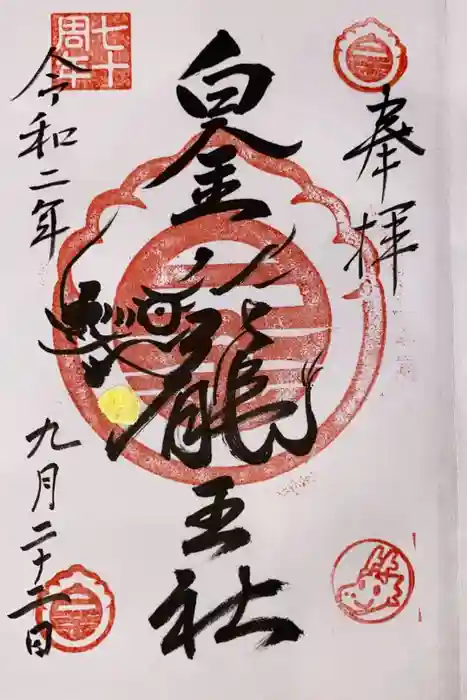 奉拝
白金龍王社
七十
周年
令和二年九月二十二日